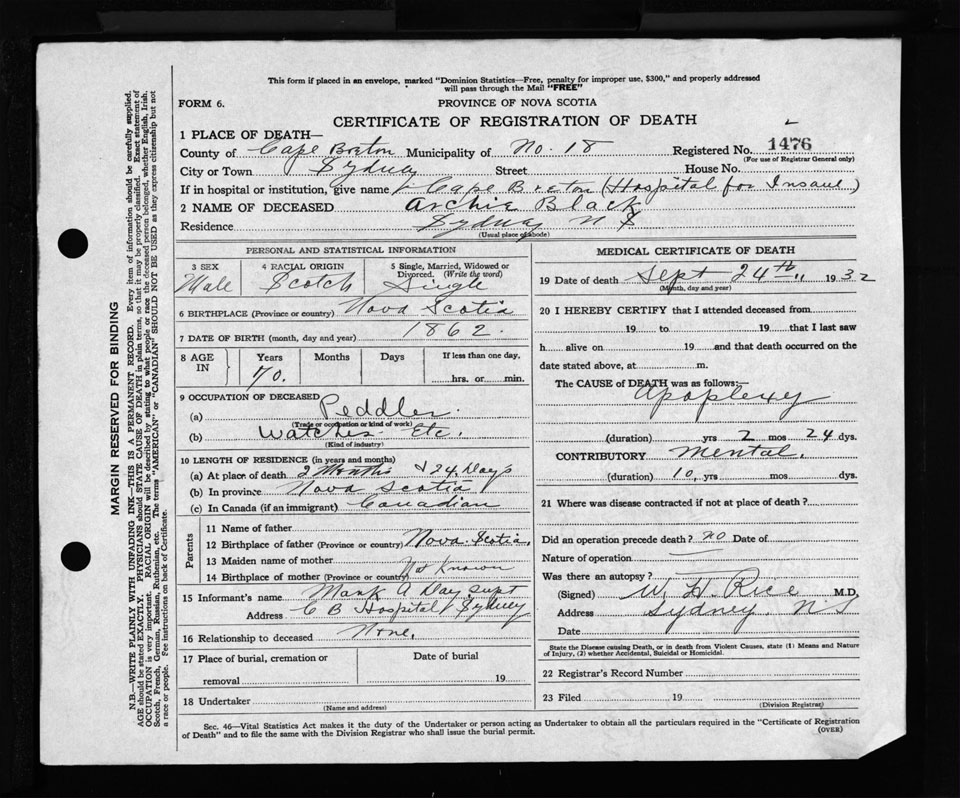 This form if placed in an envelope, marked "Dominion Statistics—Free, penalty for improper use, $300," and properly addressed
will pass through the Mail "FREE"
FORM 6.
PROVINCE OF NOVA SCOTIA
CERTIFICATE OF REGISTRATION OF DEATH
1 PLACE OF DEATH—
County of Cape Breton Municipality of No. 18 Registered No. 1476
(For use of Registrar General only)
City or Town Sydney Street House No.
If in hospital or institution, give name Cape Breton (Hospital for Insane)
2 NAME OF DECEASED Archie Black
Residence Sydney N S
(Usual place of abode)
PERSONAL AND STATISTICAL INFORMATION
3 SEX 4 RACIAL ORIGIN 5 Single, Married, Widowed or
Divorced. (Write the word)
Male Scotch Single
6 BIRTHPLACE (Province or country) Nova Scotia
7 DATE OF BIRTH (month, day and year) 1862.
8 AGE IN Years Months Days If less than one day,
70. hrs. or min.
9 OCCUPATION OF DECEASED
(a) Peddler.
(Trade or occupation or kind of work)
(b) Watches Etc.
(Kind of industry)
10 LENGTH OF RESIDENCE (in years and months)
(a) At place of death 2 Months & 24 Days
(b) In province Nova Scotia
(c) In Canada (if an immigrant) Canadian
Parents
11 Name of father
12 Birthplace of father (Province or country) Nova Scotia,
13 Maiden name of mother
14 Birthplace of mother (Province or country) Not Known
15 Informant's name Mark A Day Supt
Address C B Hospital Sydney
16 Relationship to deceased None.
17 Place of burial, cremation or Date of burial
removal 19
18 Undertaker
(Name and address)
MEDICAL CERTIFICATE OF DEATH
19 Date of death Sept 24th, 1932
(Month, day and year)
20 I HEREBY CERTIFY that I attended deceased from
19 to 19 that I last saw
h alive on 19 and that death occurred on the
date stated above, at m.
The CAUSE of DEATH was as follows:—
Apoplexy
(duration) yrs 2 mos 24 dys.
CONTRIBUTORY Mental.
(duration) 10, yrs mos dys.
21 Where was disease contracted if not at place of death?
Did an operation precede death? no Date of
Nature of operation
Was there an autopsy?
(Signed) W. H. Rice M.D,
Address Sydney, N S
Date
State the Disease causing Death, or in death from Violent Causes, state (1) Means and Nature
of Injury, (2) whether Accidental, Suicidal or Homicidal.
22 Registrar's Record Number
23 Filed 19
(Division Registrar)
Sec. 46—Vital Statistics Act makes it the duty of the Undertaker or person acting as Undertaker to obtain all the particulars required in the "Certificate of Registration
of Death" and to file the same with the Division Registrar who shall issue the burial permit.
(OVER)
MARGIN RESERVED FOR BINDING
N.B.—WRITE PLAINLY WITH UNFADING INK—THIS IS A PERMANENT RECORD. Every item of information should be carefully supplied.
AGE should be stated EXACTLY. PHYSICIANS should STATE CAUSE OF DEATH in plain terms, so that it may be properly classified. Exact statement of
OCCUPATION is very important. RACIAL ORIGIN will be described by stating to what people or race the deceased person belonged, whether English, Irish,
Scotch, French, German, Russian, Ruthenian, etc. The terms "AMERICAN" or "CANADIAN" SHOULD NOT BE USED as they express citizenship but not
a race or people. Fee instructions on back of Certificate.